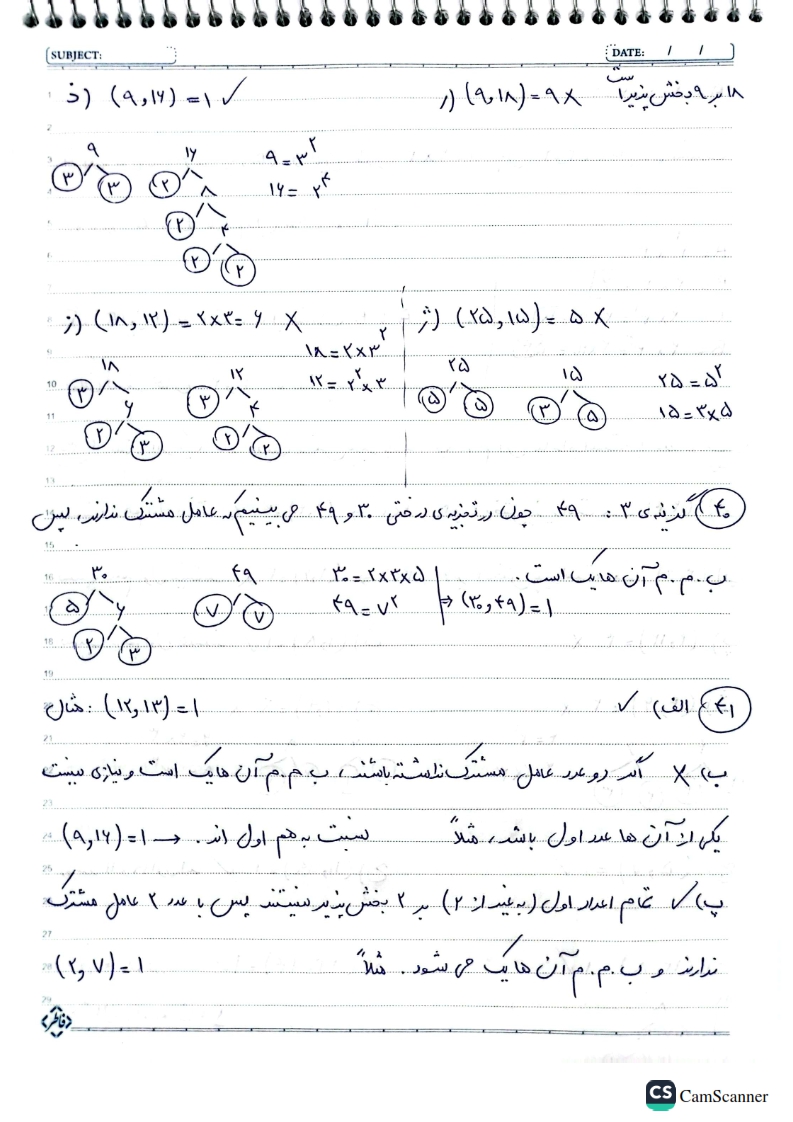 SUBJECT:
DATE: / /
ذ) (۹,۱۶) = ۱ ✓
ر) (۹,۱۸) = ۹ ×
۱۸ بر ۹ بخش پذیر است
۹
۳ ۳
۱۶
۲ ۸
۲ ۴
۲ ۲
۹ = ۳^۲
۱۶ = ۲^۴
ز) (۱۸, ۱۲) = ۲×۳ = ۶ ×
۱۸ = ۲×۳^۲
۱۲ = ۲^۲×۳
۱۸
۳ ۶
۲ ۳
۱۲
۳ ۴
۲ ۲
ژ) (۲۵, ۱۵) = ۵ ×
۲۵
۵ ۵
۱۵
۳ ۵
۲۵ = ۵^۲
۱۵ = ۳×۵
۴۰) گزینه ی ۳ : ۴۹ چون در تجزیه ی درختی ۳۰ و ۴۹ می بینیم که عامل مشترک ندارند، پس
ب.م.م آن ها یک است.
۳۰
۵ ۶
۲ ۳
۴۹
۷ ۷
۳۰ = ۲×۳×۵
۴۹ = ۷^۲
⇒ (۳۰,۴۹) = ۱
۴۱) الف) ✓ مثال: (۱۲,۱۳) = ۱
ب) × اگر دو عدد عامل مشترک نداشته باشند، ب.م.م آن ها یک است و نیازی نیست
یکی از آن ها عدد اول باشد، مثلاً (۹,۱۶) = ۱ → نسبت به هم اول اند.
پ) ✓ تمام اعداد اول (به غیر از ۲) بر ۲ بخش پذیر نیستند پس با عدد ۲ عامل مشترک
ندارند و ب.م.م آن ها یک می شود. مثلاً (۲,۷) = ۱
CS CamScanner